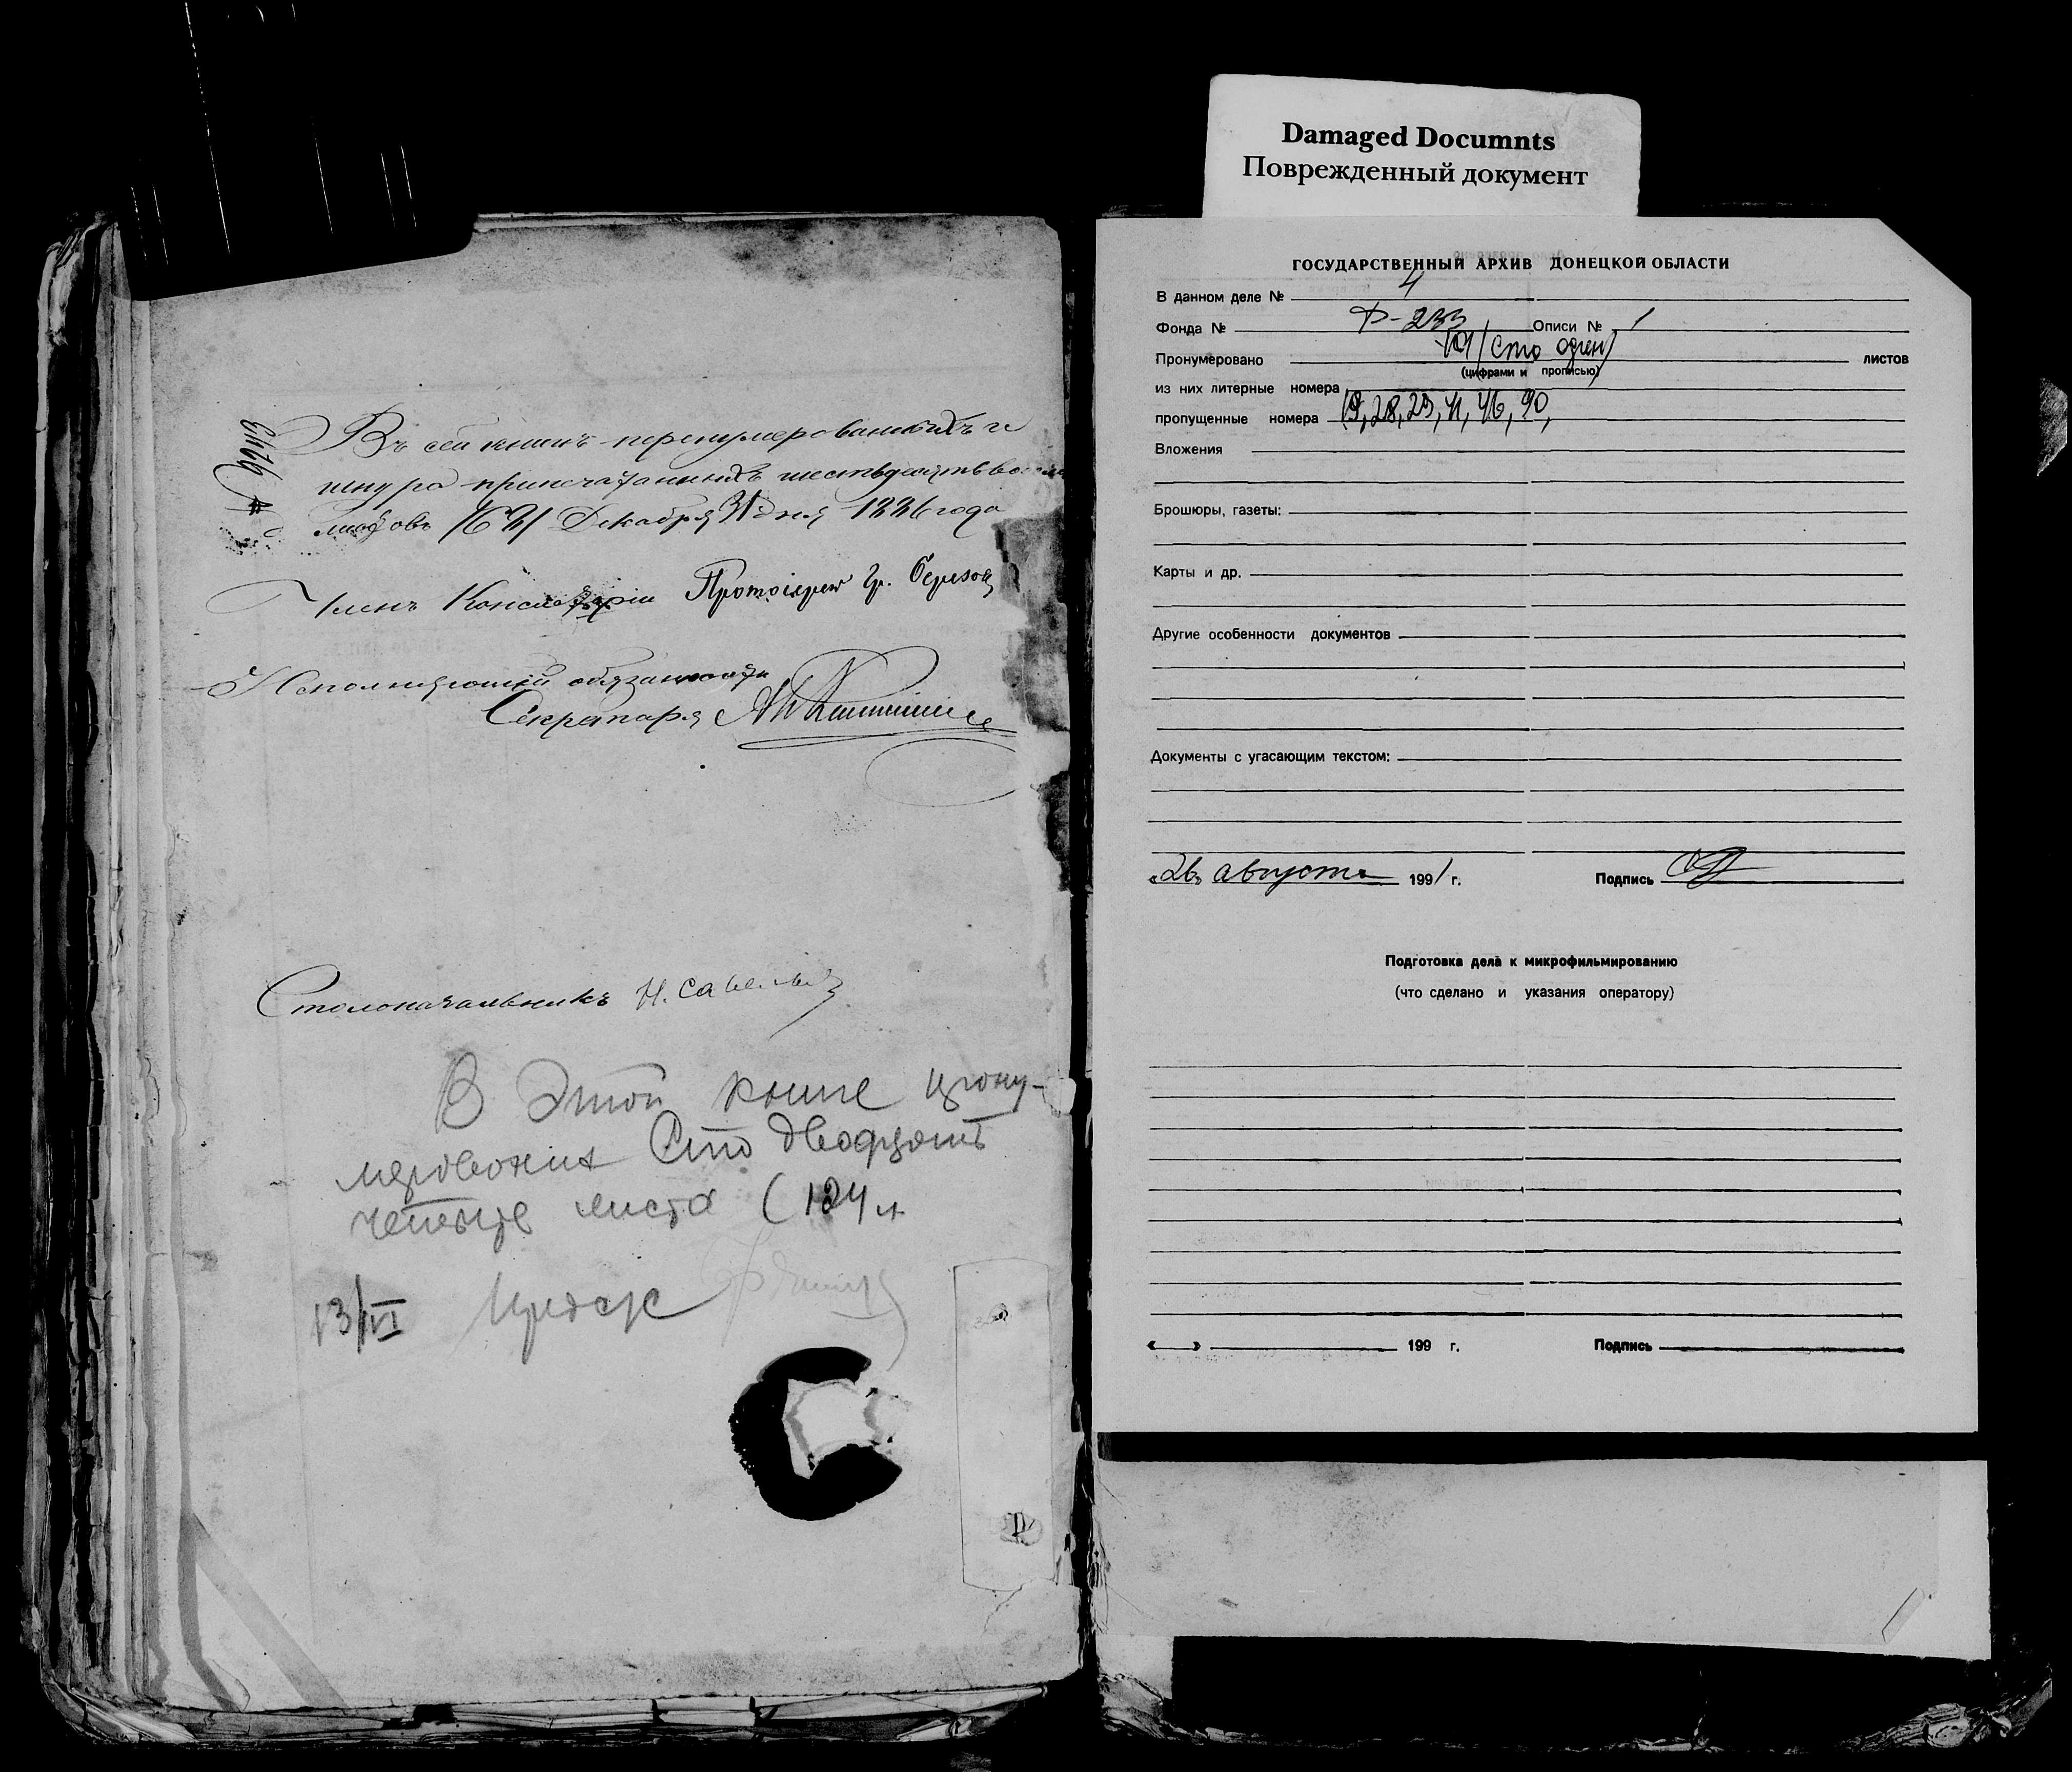 Въ сей книгѣ перенумерованныхъ и
шнура припечатанныхъ шестьдесятъ
листовъ /68/ Декабря 31 дня 1886 года
Членъ Консисторіи Протоіерей Гр.
Исполняющій обязанности
Секретаря
Столоначальникъ Н.
В этой книге прону-
мерованих сто двадцать
четыре листа (124 л
13/VI
Damaged Documnts
Поврежденный документ
ГОСУДАРСТВЕННЫЙ АРХИВ ДОНЕЦКОЙ ОБЛАСТИ
В данном деле № 4
Фонда № Ф-233 Описи № 1
Пронумеровано 101 /сто один/ листов
(цифрами и прописью)
из них литерные номера
пропущенные номера 19, 28, 29, 41, 46, 90,
Вложения
Брошюры, газеты:
Карты и др.
Другие особенности документов
Документы с угасающим текстом:
«26» августа 1991 г. Подпись
Подготовка дела к микрофильмированию
(что сделано и указания оператору)
« » 199 г. Подпись